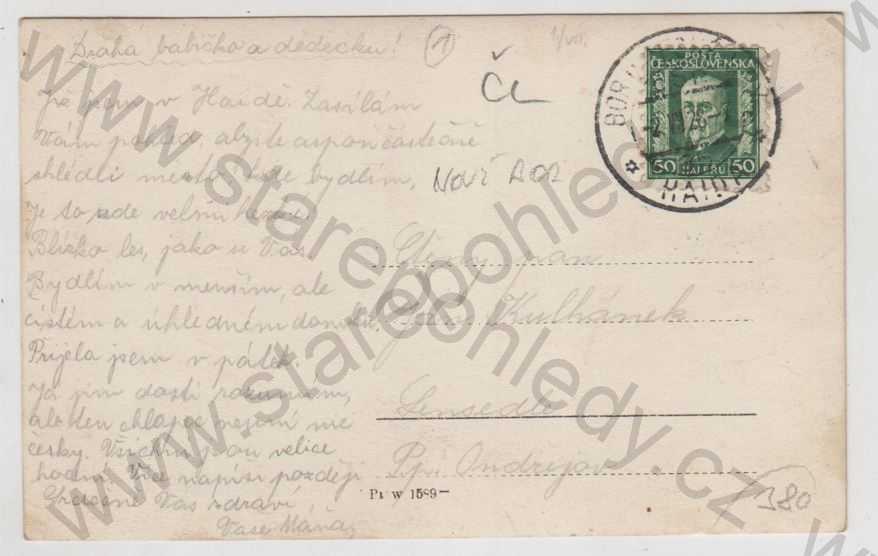 Drahá babičko a dědečku! 1
Již jsem v Haidě. Zasílám
Vám pohled, abyste aspoň částečně
shlédli město, kde bydlím.
Je to zde velmi hezké.
Blízko les, jako u Vás.
Bydlím v menším, ale
čistém a úhledném domku.
Přijela jsem v pátek.
Já jim dosti rozumím,
ale ten chlapec neumí nic
česky. Všichni jsou velice
hodní. Více napíši později.
Srdečně Vás zdraví
Vaše Máňa
ČL
NOVÝ BOR
POŠTA
ČESKOSLOVENSKA
50 HALÉŘŮ 50
BOR U
HAIDA
Ctěný pan
Jan Kulhánek
Sensedly
P. p. Ondřejov
Pt w 1589-
380
www.starepohledy.cz